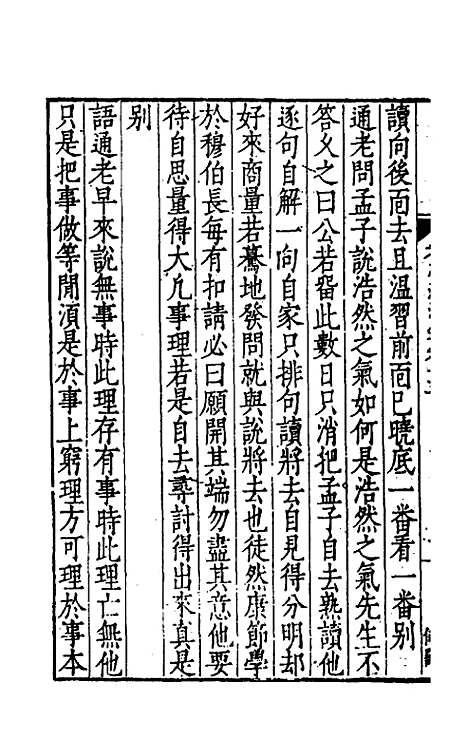 讀向後靣去且温習前靣已曉底一番看一番别
通老問孟子說浩然之氣如何是浩然之氣先生不
答乆之曰公若留此數日只消把孟子自去熟讀他
逐句自解一向自家只排句讀將去自見得分明却
好來商量若驀地發問就與說將去也徒然康節學
於穆伯長每有扣請必曰願開其端勿盡其意他要
待自思量得大凢事理若是自去尋討得出來真是
别
語通老早來說無事時此理存有事時此理亡無他
只是把事做等閒湏是於事上窮理方可理於事本